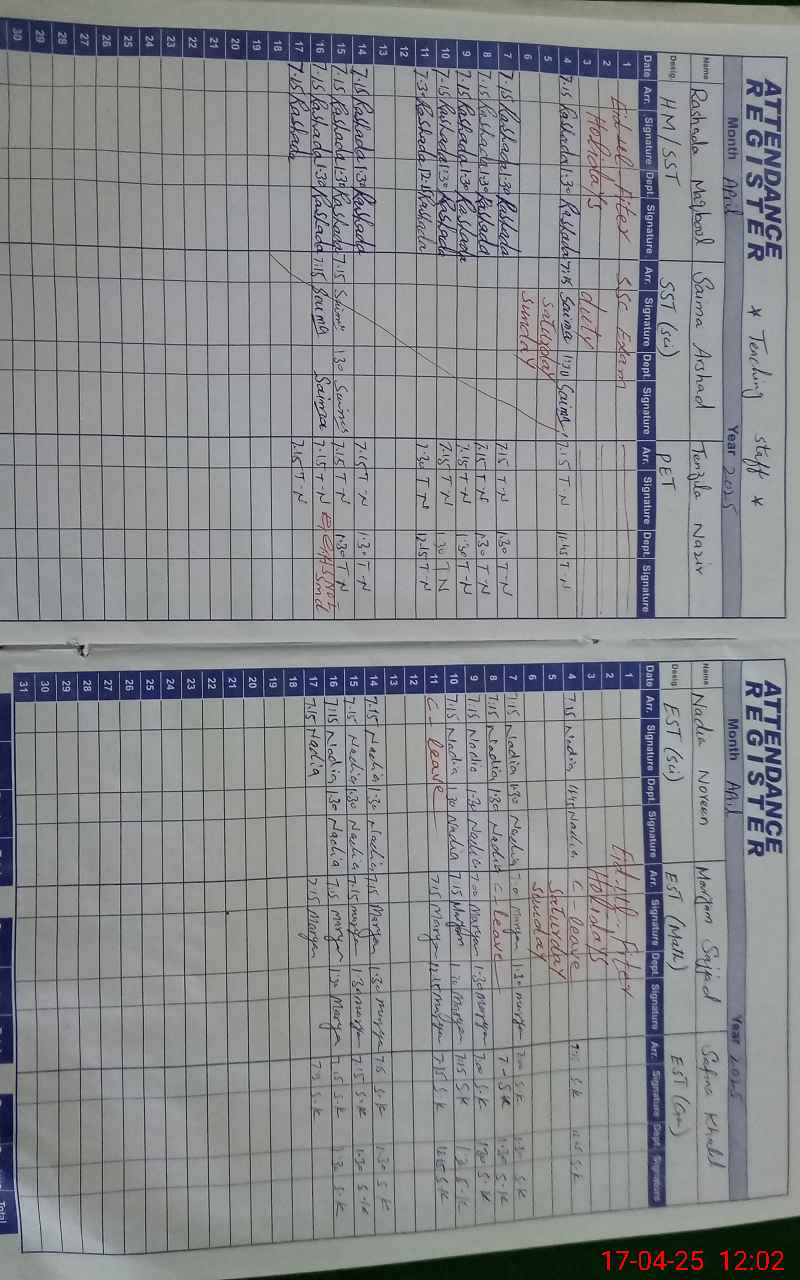 ATTENDANCE REGISTER
* Teaching staff *
Month April Year 2025
Name Rashada Maqbool Saima Arshad Tenzila Nazir
Desig. HM/SST SST (sci) PET
Date Arr. Signature Dept. Signature Arr. Signature Dept. Signature Arr. Signature Dept. Signature
1 Eid-ul-fiter SSC Exam
2 Holidays duty
3
4 7.15 Rashada 1:30 Rashada 7:15 Saima 1:30 Saima 7.15 T-N 11:45 T-N
5 Saturday
6 Sunday
7 7.15 Rashada 1:30 Rashada 7.15 T-N 1:30 T-N
8 7.15 Rashada 1:30 Rashada 7.15 T-N 1:30 T-N
9 7.15 Rashada 1:30 Rashada 7.15 T-N 1:30 T-N
10 7.15 Rashada 1:30 Rashada 7.15 T-N 1:30 T-N
11 7.30 Rashada 12.15 Rashada 7.30 T-N 12.15 T-N
12
13
14 7.15 Rashada 1:30 Rashada 7.15 T-N 1:30 T-N
15 7.15 Rashada 1:30 Rashada 7.15 Saima 1:30 Saima 7.15 T-N 1:30 T-N
16 7.15 Rashada 1:30 Rashada 7.15 Saima Saima 7.15 T-N
17 7.15 Rashada 7.15 T-N
18
19
20
21
22
23
24
25
26
27
28
29
30
ATTENDANCE REGISTER
Month April Year 2025
Name Nadia Noreen Maryam Sajjad Safina Khalid
Desig. EST (sci) EST (Math) EST (Gen)
Date Arr. Signature Dept. Signature Arr. Signature Dept. Signature Arr. Signature Dept. Signature
1 Eid-ul-fiter
2 Holidays
3
4 7:15 Nadia 11:45 Nadia C-leave 7:15 S.K 11:45 S.K
5 Saturday
6 Sunday
7 7:15 Nadia 1:30 Nadia 7:00 Maryam 1:30 Maryam 7:00 S.K 1:30 S.K
8 7:15 Nadia 1:30 Nadia C-leave S.K 1:30 S.K
9 7:15 Nadia 1:30 Nadia 7:00 Maryam 1:30 Maryam 7:00 S.K 1:30 S.K
10 7:15 Nadia 1:30 Nadia 7:15 Maryam 1:30 Maryam 7:15 S.K S.K
11 C-leave 7:15 Maryam 12:15 Maryam 7:15 S.K 12:15 S.K
12
13
14 7.15 Nadia 1:30 Nadia 7:15 Maryam 1:30 Maryam S.K 1:30 S.K
15 7.15 Nadia 1:30 Nadia 7.15 Maryam 1:30 Maryam 7.15 S.K 1:30 S.K
16 7:15 Nadia 1:30 Nadia 7:15 Maryam 1:30 Maryam 7:15 S.K 1:30 S.K
17 7:15 Nadia 7:15 Maryam S.K
18
19
20
21
22
23
24
25
26
27
28
29
30
31
Total
17-04-25 12:02